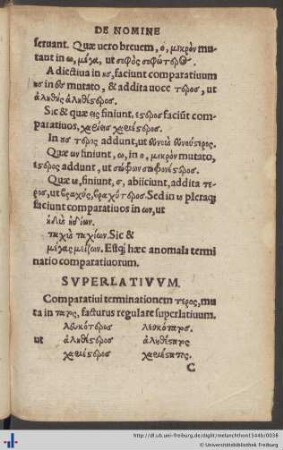 DE NOMINE
seruant. Quæ uero breuem, ο, μικρὸν mu
tant in ω, μέγα, ut σοφὸς σοφώτερος.
Adiectiua in ης, faciunt comparatiuum
ης in ες mutato, & addita uoce τερος, ut
ἀληθὴς ἀληθέστερος.
Sic & quæ εις finiunt, έστερος faciūt com
paratiuos, χαρίεις χαριέστερος.
In ους τερος addunt, ut εὔνους εὐνούστερος.
Quæ ων finiunt, ω, in ο, μικρὸν mutato,
έστερος addunt, ut σώφρων σωφρονέστερος.
Quæ υς finiunt, ς, abijciunt, addita τε
ρος, ut βραχὺς, βραχύτερος. Sed in υς pleraq;
faciunt comparatiuos in ίων, ut
ἡδὺς ἡδίων.
ταχὺς ταχίων. Sic &
μέγας μείζων. Estq; hæc anomala termi
natio comparatiuorum.
SVPERLATIVVM.
Comparatiui terminationem τερος, mu
ta in τατος, facturus regulare superlatiuum.
λευκότερος λευκότατος.
ut ἀληθέστερος ἀληθέστατος
χαριέστερος χαριέστατος.
C
http://dl.ub.uni-freiburg.de/diglit/melanchthon1544b/0038
© Universitätsbibliothek Freiburg